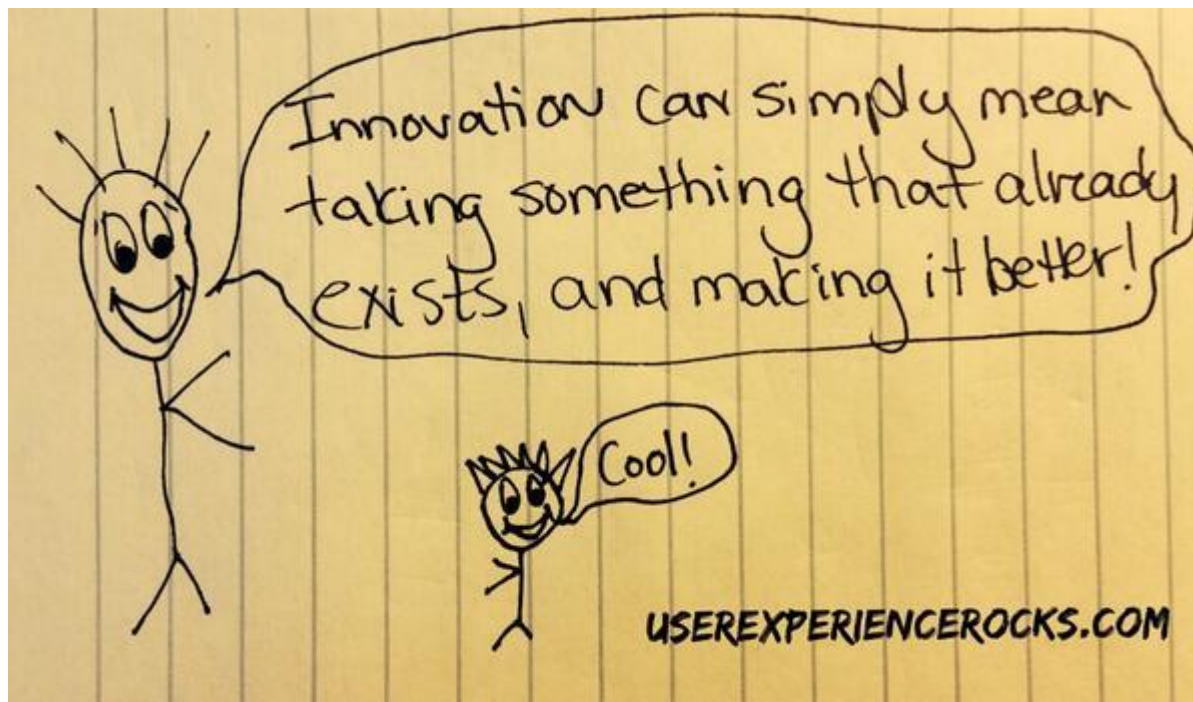 Innovation can simply mean
taking something that already
exists, and making it better!
Cool!
USEREXPERIENCEROCKS.COM